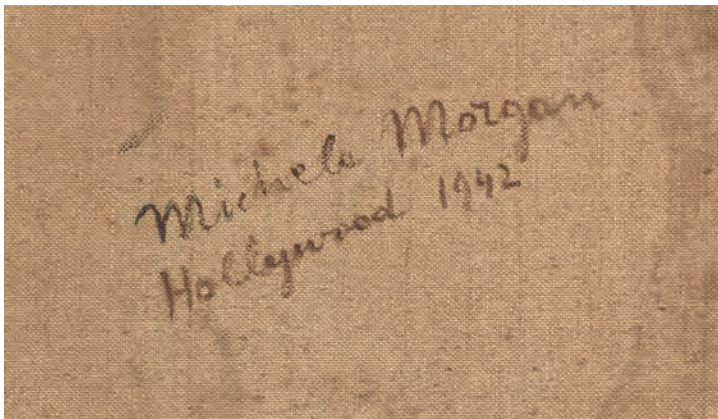 Michele Morgan
Hollywood 1942